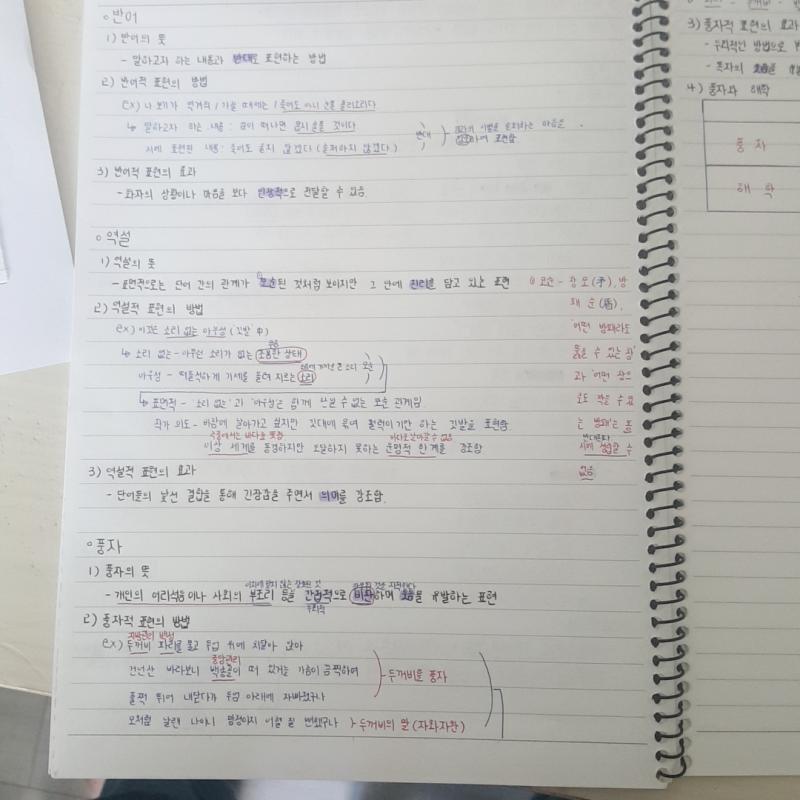 ◦반어
1) 반어의 뜻
- 말하고자 하는 내용과 반대로 표현하는 방법
2) 반어적 표현의 방법
ex) 나 보기가 역겨워 / 가실 때에는 / 죽어도 아니 눈물 흘리오리다
↳ 말하고자 하는 내용 : 임이 떠나면 몹시 슬플 것이다
시에 표현된 내용 : 죽어도 울지 않겠다 (슬퍼하지 않겠다.)
반대
하여 표현함
3) 반어적 표현의 효과
- 화자의 상황이나 마음을 보다 인상적으로 전달할 수 있음.
◦역설
1) 역설의 뜻
- 표면적으로는 단어 간의 관계가 ①모순된 것처럼 보이지만 그 안에 진리를 담고 있는 표현
① 모순 - 창 모(矛), 방
패 순(盾),
'어떤 방패라도
뚫을 수 있는 창'
과 '어떤 창으
로도 막을 수 있
는 방패'는 동
시에 성립할 수
없음
2) 역설적 표현의 방법
ex) 이것은 소리 없는 아우성 (깃발 中)
↳ 소리 없는 - 아무런 소리가 없는 조용한 상태
아우성 - 떠들썩하게 기세를 올려 지르는 소리
모순
↳ 표면적 - '소리 없는'과 '아우성'은 함께 쓰일 수 없는 모순 관계임.
작가 의도 - 바람에 날아가고 싶지만 깃대에 묶여 펄럭이기만 하는 깃발을 표현함
이상 세계를 동경하지만 도달하지 못하는 운명적 한계를 강조함
3) 역설적 표현의 효과
- 단어들의 낯선 결합을 통해 긴장감을 주면서 의미를 강조함.
◦풍자
1) 풍자의 뜻
- 개인의 어리석음이나 사회의 부조리 등을 간접적으로 비판하여 웃음을 유발하는 표현
우회적
2) 풍자적 표현의 방법
지방관리 백성
ex) 두꺼비 파리를 물고 두엄 위에 치달아 앉아
중앙관리
건넌산 바라보니 백송골이 떠 있거늘 가슴이 끔찍하여
두꺼비를 풍자
풀쩍 뛰어 내닫다가 두엄 아래에 자빠졌구나
모처럼 날랜 나이니 망정이지 어혈 질 뻔했구나
두꺼비의 말 (자화자찬)
3) 풍자적 표현의 효과
- 우회적인 방법으로
- 독자의 웃음을
4) 풍자와 해학
풍 자
해 학